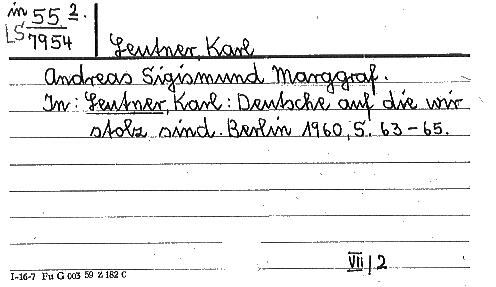 in 55 2.
LS 7954
Leutner, Karl
Andreas Sigismund Marggraf.
In: Leutner, Karl: Deutsche auf die wir
stolz sind. Berlin 1960, S. 63-65.
VII/2
I-16-7 Fu G 003 59 Z 182 C